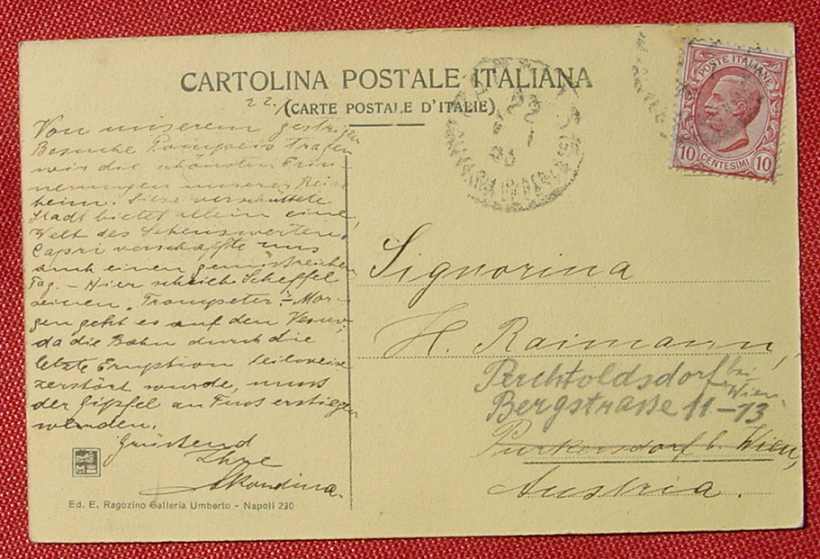 CARTOLINA POSTALE ITALIANA
(CARTE POSTALE D'ITALIE)
22.
POSTE ITALIANE
10 CENTESIMI 10
Von unserem gestrigen
Besuche Pompeis trafen
wir die schönsten Erin-
nerungen unserer Reise
heim. Diese verschüttete
Stadt bietet allein eine
Welt des Sehenswerten,
Capri verschaffte uns
auch einen genussreichen
Tag. – Hier schrieb Scheffel
seinen „Trompeter". – Mor-
gen geht es auf den Vesuv,
da die Bahn durch die
letzte Eruption teilweise
zerstört wurde, muss
der Gipfel zu Fuss erstiegen
werden.
Grüssend
Ihre
Signorina
H. Raimann,
Perchtoldsdorf bei
Wien
Bergstrasse 11-13
Purkersdorf b. Wien,
Austria.
Ed. E. Ragozino Galleria Umberto - Napoli 230